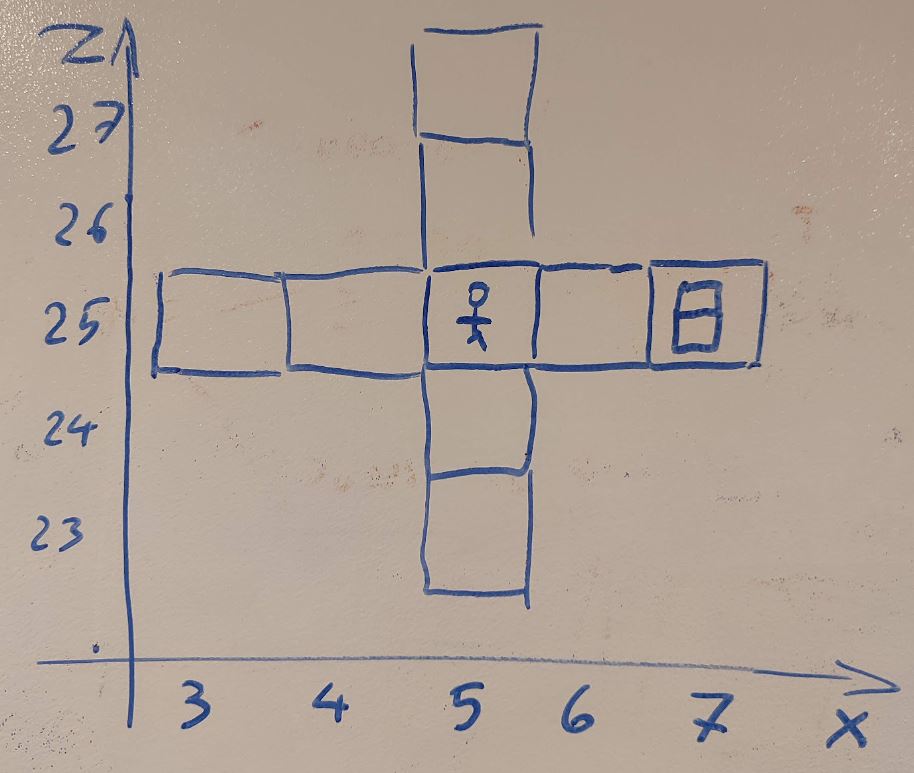 Z
27
26
25
24
23
3 4 5 6 7 X